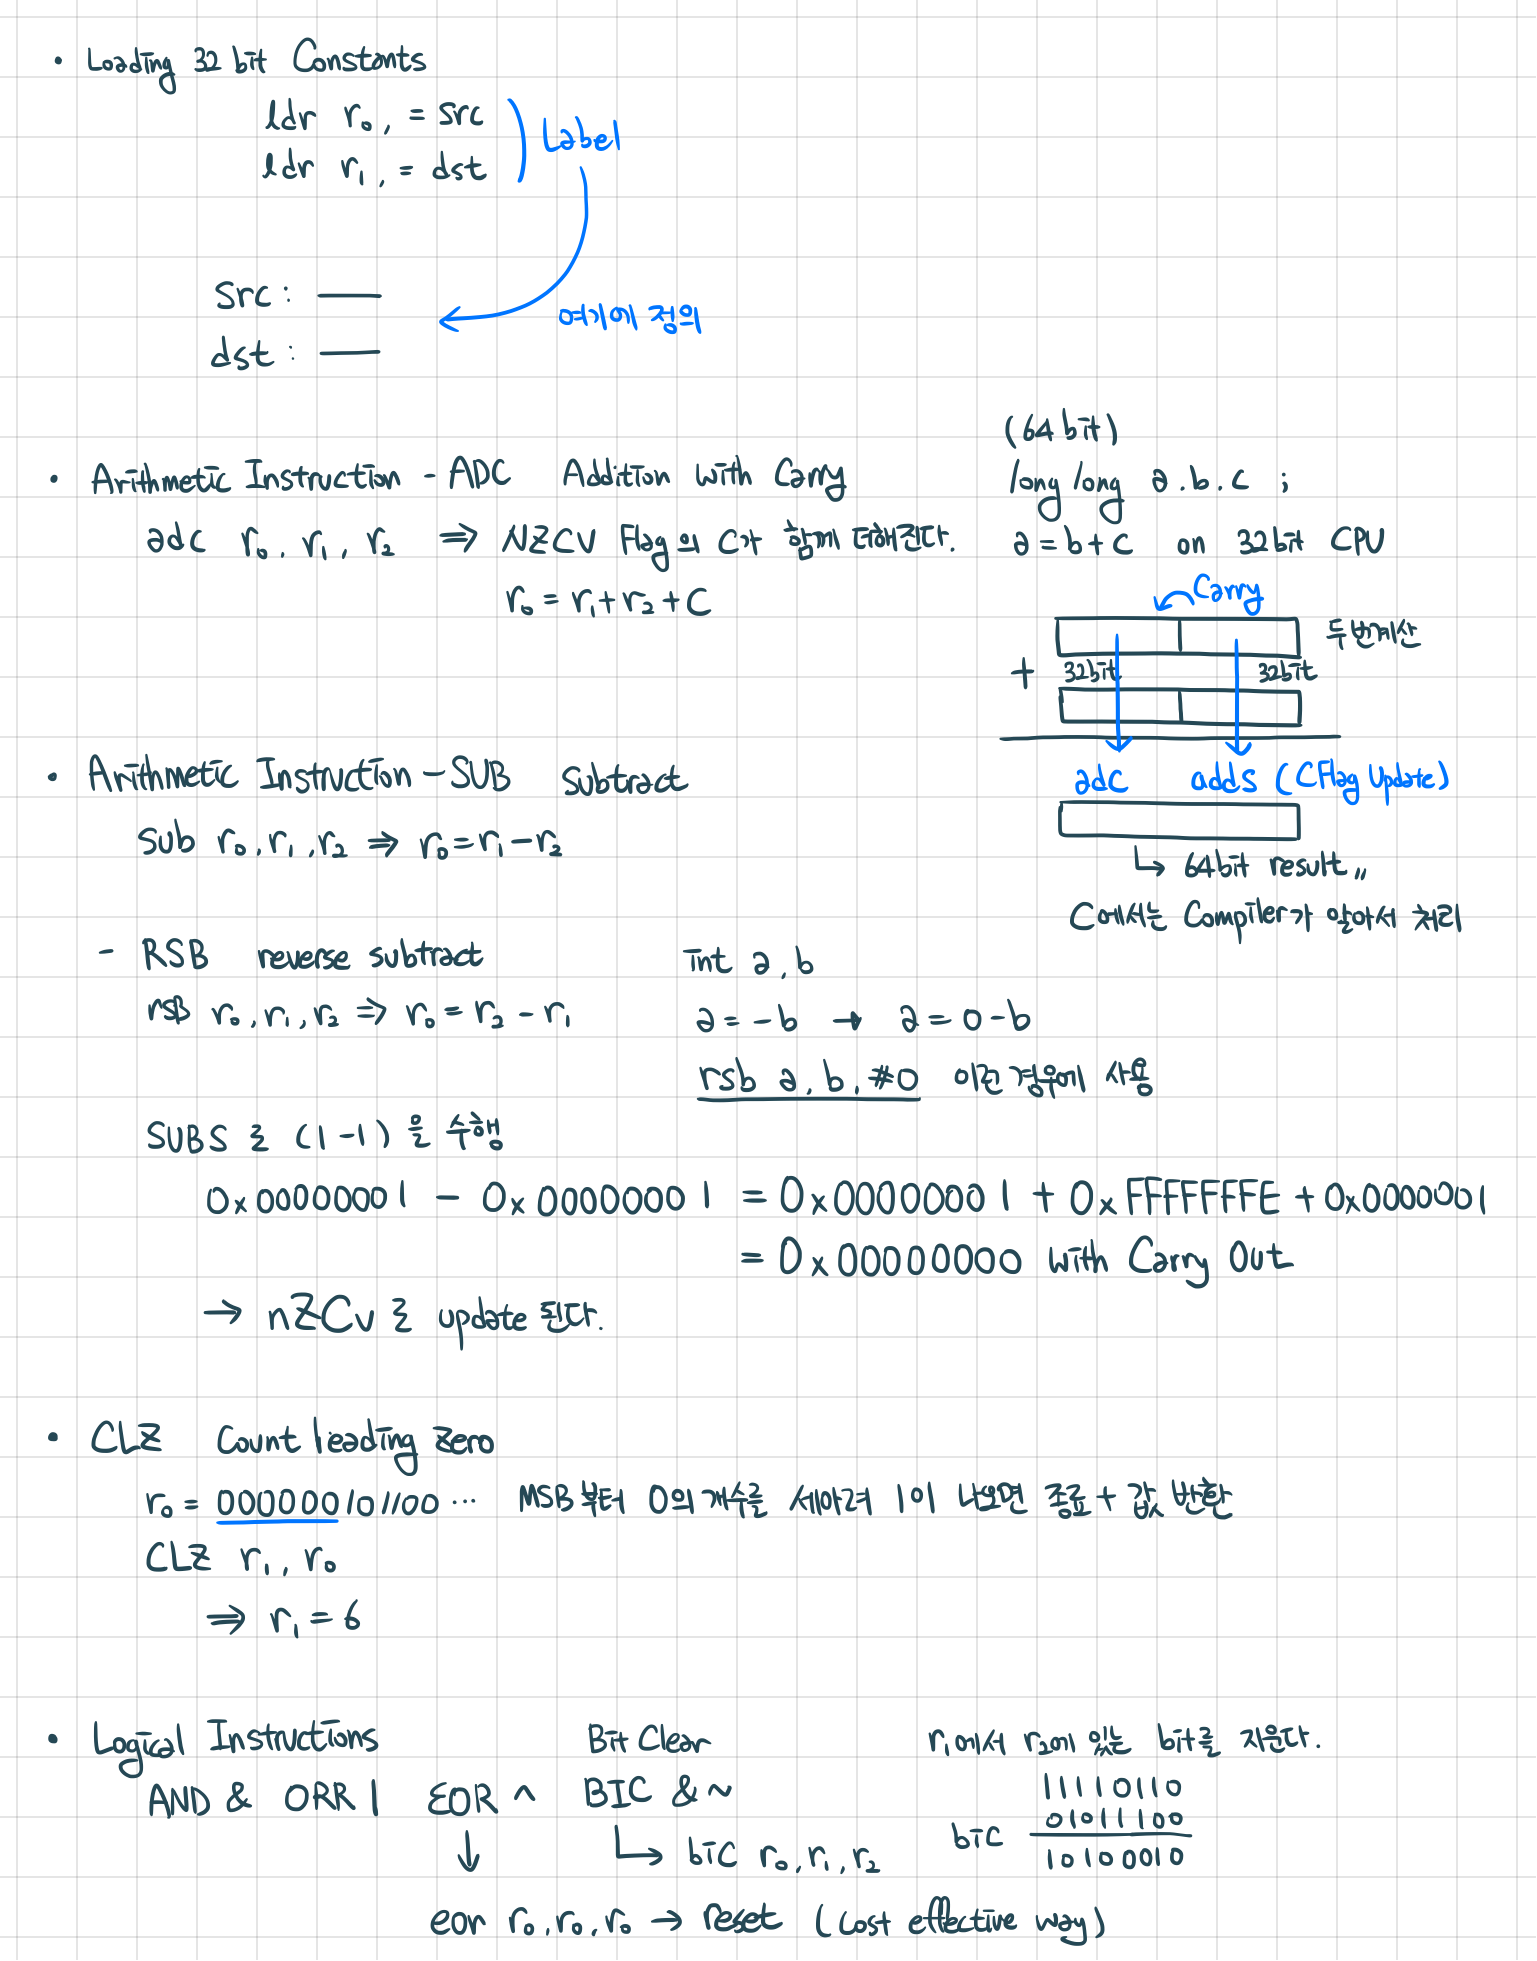 • Loading 32 bit Constants
ldr r₀, = src
ldr r₁, = dst
Label
src : —
dst : —
여기에 정의
• Arithmetic Instruction - ADC Addition with Carry
adc r₀, r₁, r₂ ⇒ NZCV Flag의 C가 함께 더해진다.
r₀ = r₁+r₂+C
(64 bit)
long long a.b.c ;
a = b + c on 32bit CPU
Carry
두번계산
+ 32bit 32bit
adc adds (CFlag Update)
↳ 64bit result,,
C에서는 Compiler가 알아서 처리
• Arithmetic Instruction - SUB Subtract
Sub r₀, r₁, r₂ ⇒ r₀=r₁-r₂
- RSB reverse subtract
rsB r₀, r₁, r₂ ⇒ r₀ = r₂ - r₁
int a, b
a = -b → a = 0-b
rsb a, b, #0 이런 경우에 사용
SUBS 로 (1-1) 을 수행
0x00000001 - 0x00000001 = 0x00000001 + 0xFFFFFFFE + 0x0000001
= 0x00000000 with Carry Out
→ nZCv 로 update 된다.
• CLZ Count leading zero
r₀ = 000000101100 ··· MSB부터 0의 개수를 세아려 1이 나오면 종료 + 값 반환
CLZ r₁, r₀
⇒ r₁ = 6
• Logical Instructions
AND & ORR | EOR ^ BIC & ~
Bit Clear
↳ bic r₀, r₁, r₂
eor r₀, r₀, r₀ → reset (Cost effective way)
r₁에서 r₂에 있는 bit를 지운다.
11110110
bic 01011100
10100010